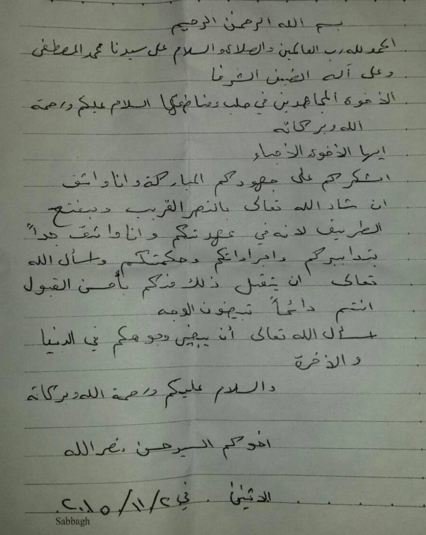 بسم الله الرحمن الرحيم
الحمد لله رب العالمين والصلاة والسلام على سيدنا محمد المصطفى
وعلى آله الشرفا
الاخوة المجاهدين في حلب ومناطقها السلام عليكم ورحمة
الله وبركاته
ايها الاخوة الاحباء
اشكركم على جهودكم المباركة وانا واثق
ان شاء الله تعالى بالنصر القريب وسيفتح
الطريق لانه في عهدتكم وانا واثق جداً
بتدابيركم واجراءاتكم وحكمتكم واسأل الله
تعالى ان يتقبل ذلك منكم بأحسن القبول
انتم دائماً تبيضون الوجه
اسأل الله تعالى أن يبيض وجوهكم في الدنيا
والاخرة
والسلام عليكم ورحمة الله وبركاته
اخوكم السيد حسن نصرالله
الاثنين في ٢/١١/٢٠١٥
Sabbagh